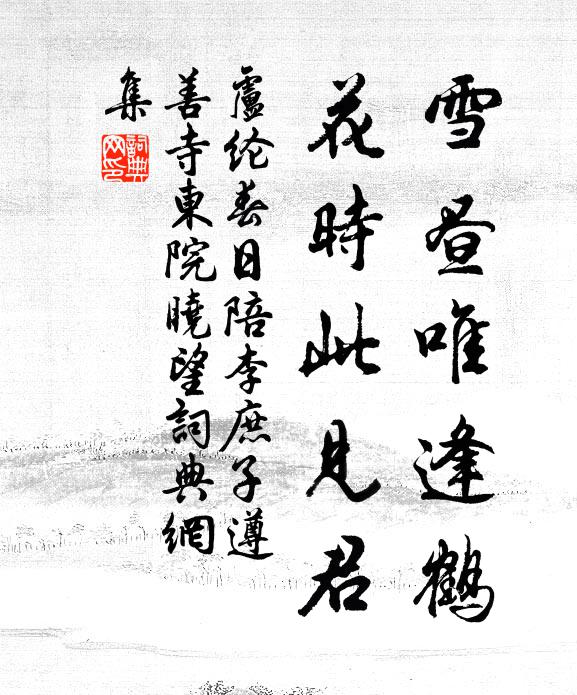 雪昼唯逢鹤
花時此見君
盧纶春日陪李庶子遵
善寺東院曉望詞典網
集
詞典
网印